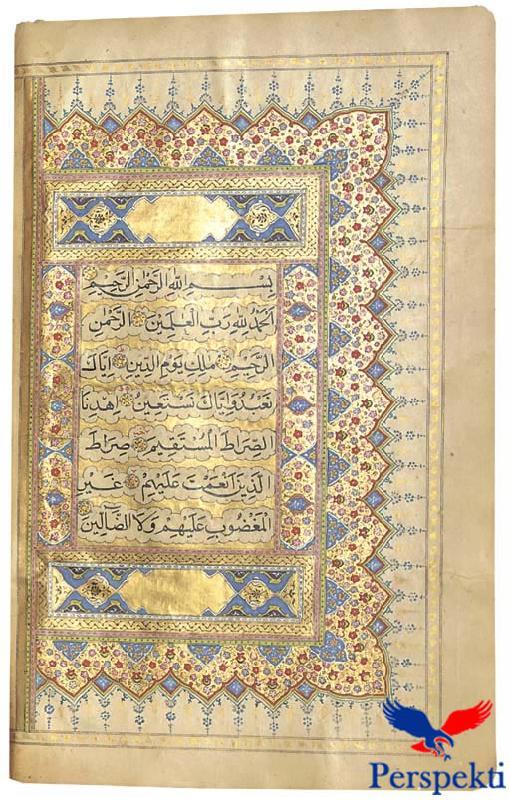 بِسْمِ اللهِ الرَّحْمٰنِ الرَّحِيْمِ
اَلْحَمْدُ لِلّٰهِ رَبِّ الْعٰلَمِيْنَ الرَّحْمٰنِ
الرَّحِيْمِ مٰلِكِ يَوْمِ الدِّيْنِ اِيَّاكَ
نَعْبُدُ وَاِيَّاكَ نَسْتَعِيْنُ اِهْدِنَا
الصِّرَاطَ الْمُسْتَقِيْمَ صِرَاطَ
الَّذِيْنَ اَنْعَمْتَ عَلَيْهِمْ غَيْرِ
الْمَغْضُوبِ عَلَيْهِمْ وَلَا الضَّالِّيْنَ
Perspekti